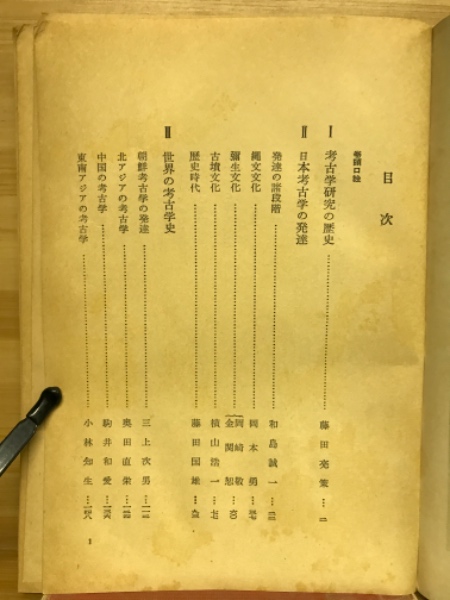 目次
巻頭口絵
Ⅰ 考古学研究の歴史……藤田亮策…一
Ⅱ 日本考古学の発達
発達の諸段階……和島誠一…
縄文文化……岡本勇…
彌生文化……岡崎敬 金関恕…
古墳文化……横山浩一…
歴史時代……藤田国雄…
Ⅲ 世界の考古学史
朝鮮考古学の発達……三上次男…
北アジアの考古学……奥田直栄…
中国の考古学……駒井和愛…
東南アジアの考古学……小林知生…
1